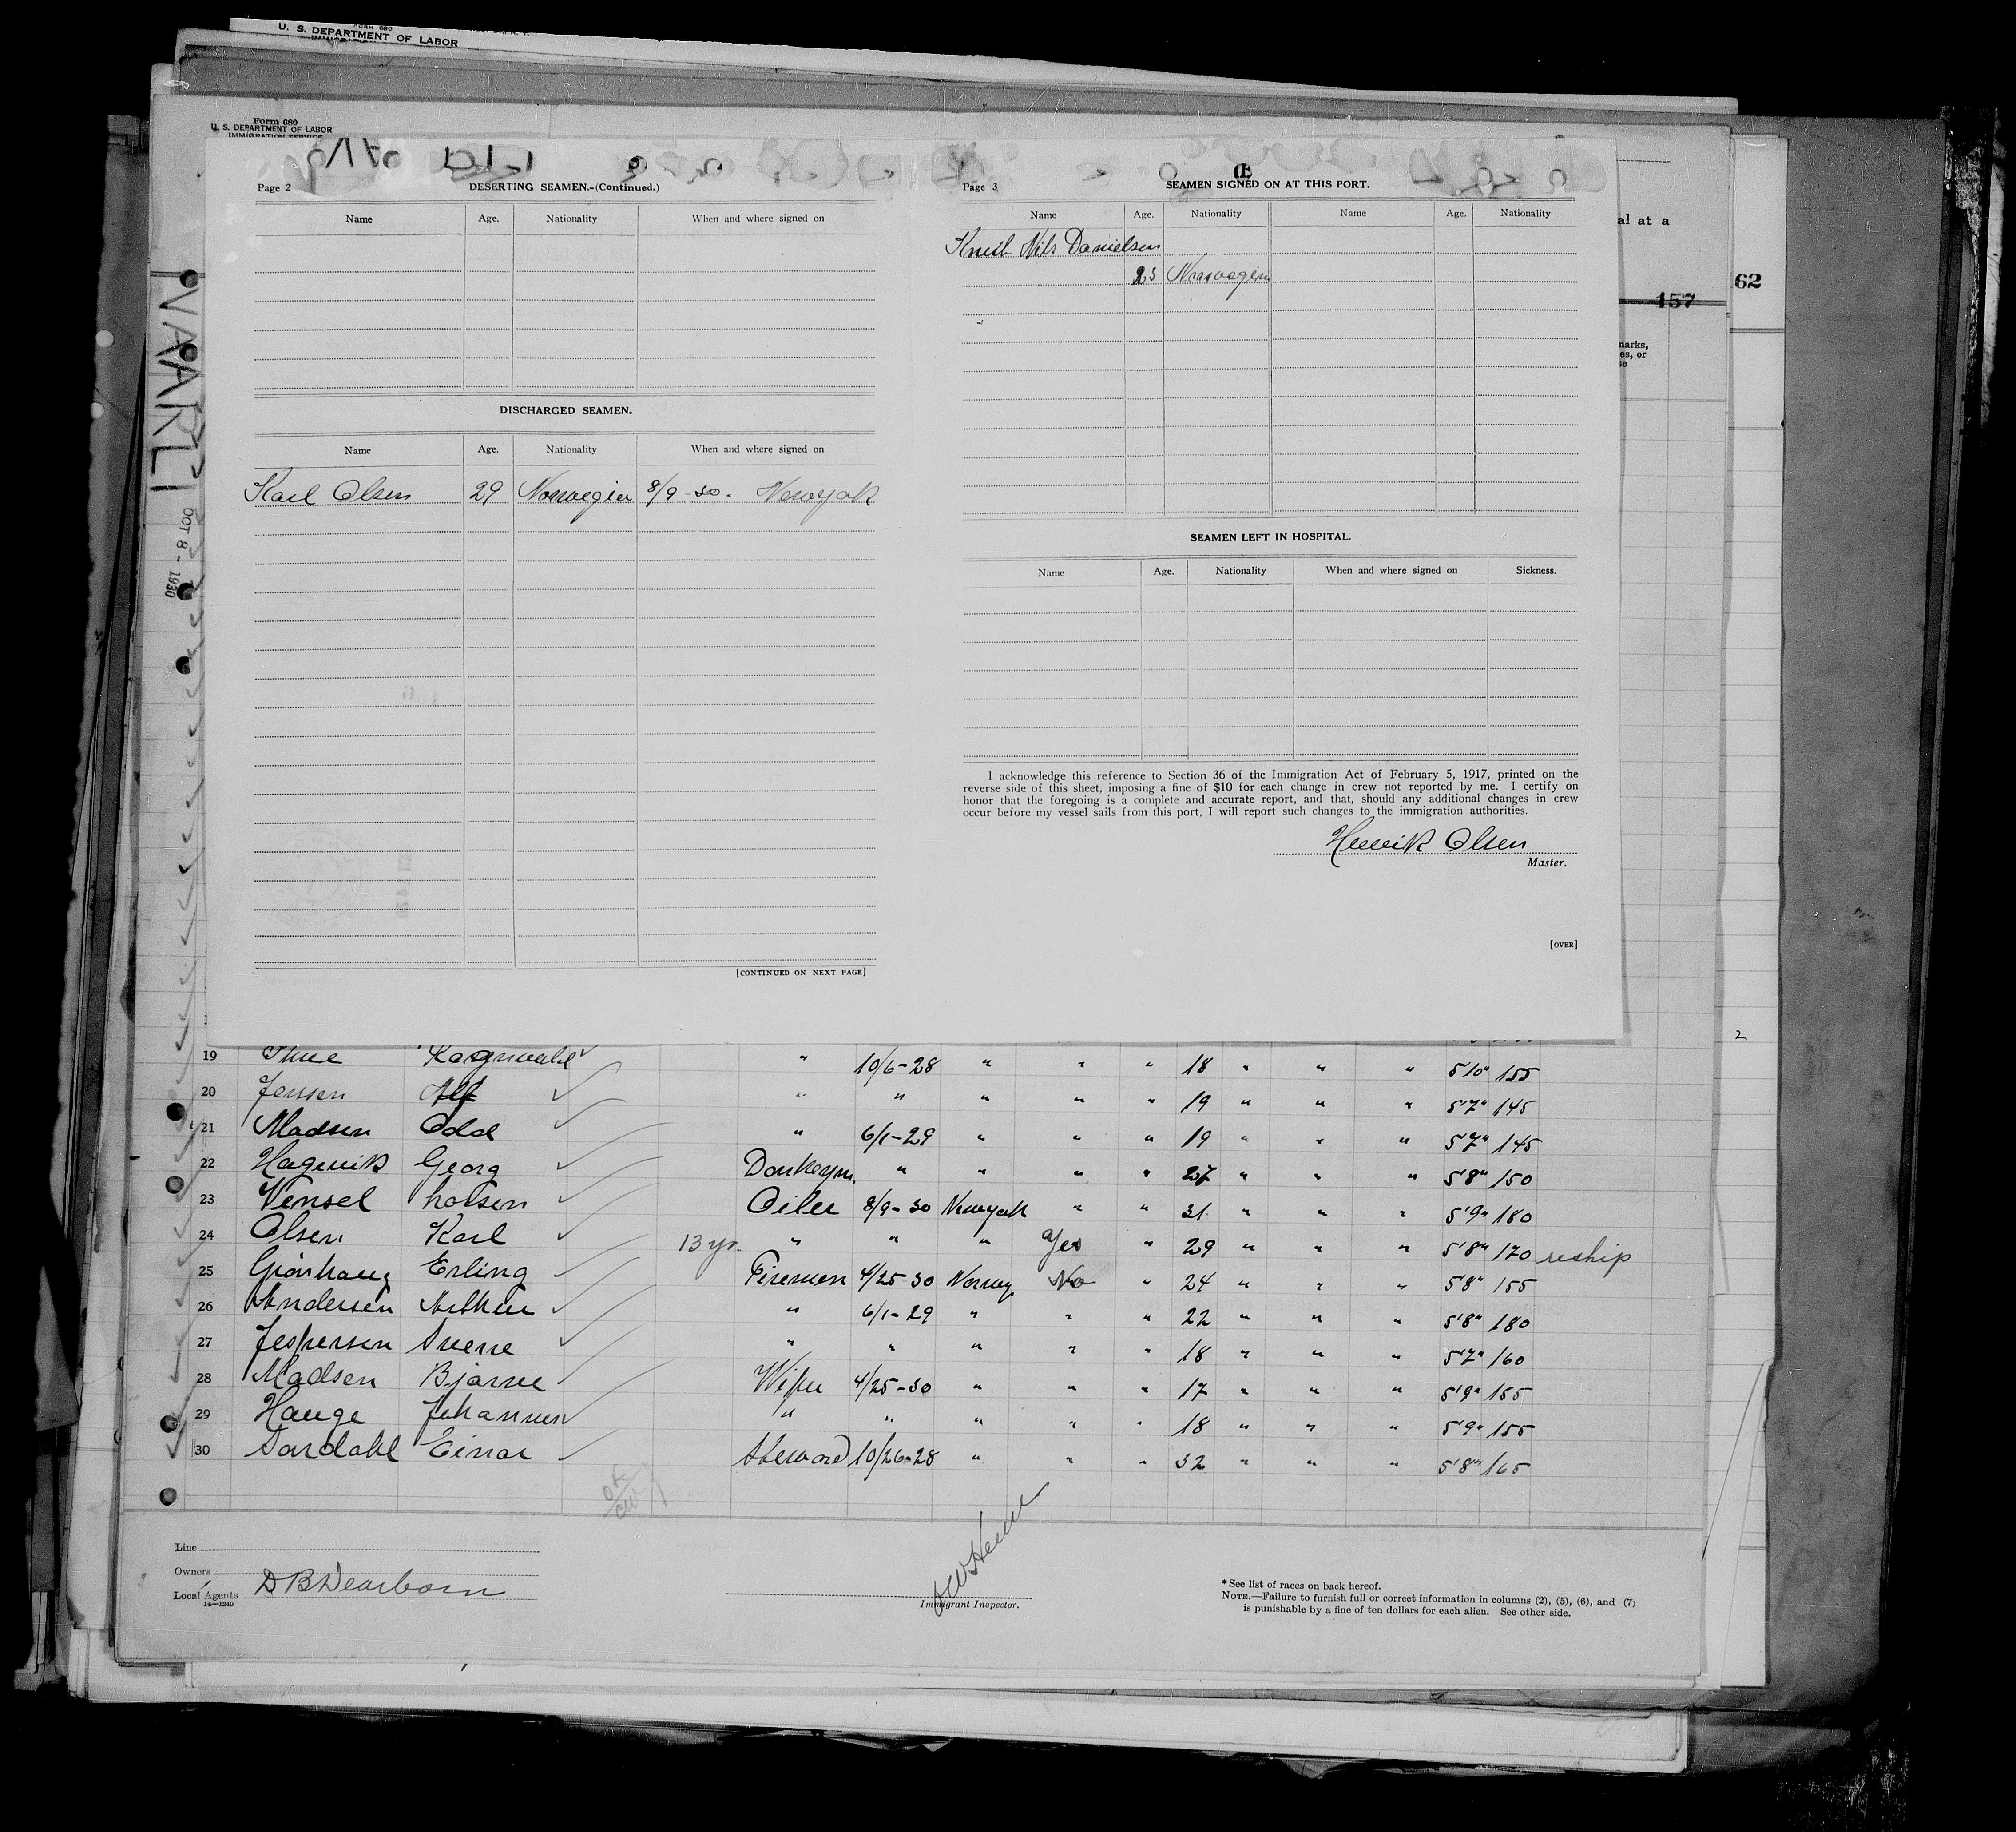 U. S. DEPARTMENT OF LABOR
Form 680
U. S. DEPARTMENT OF LABOR
IMMIGRATION SERVICE
Page 2 DESERTING SEAMEN.-(Continued.)
Name Age. Nationality When and where signed on
DISCHARGED SEAMEN.
Name Age. Nationality When and where signed on
Karl Olsen 29 Norwegian 8/9-30. Newyork
[CONTINUED ON NEXT PAGE]
Page 3 SEAMEN SIGNED ON AT THIS PORT.
Name Age. Nationality Name Age. Nationality
Knut Nils Danielsen
23 Norwegian
SEAMEN LEFT IN HOSPITAL.
Name Age. Nationality When and where signed on Sickness.
I acknowledge this reference to Section 36 of the Immigration Act of February 5, 1917, printed on the
reverse side of this sheet, imposing a fine of $10 for each change in crew not reported by me. I certify on
honor that the foregoing is a complete and accurate report, and that, should any additional changes in crew
occur before my vessel sails from this port, I will report such changes to the immigration authorities.
Henrik Olsen
Master.
[OVER]
al at a
62
157
marks,
es, or
se
VARLI
OCT 8 - 1930
2
19 Thue Ragnvald " 10/6-28 " " " 18 " " " 5'10" 155
20 Jensen Alf " " " " " 19 " " " 5'7" 145
21 Madsen Odd " 6/1-29 " " " 19 " " " 5'7" 145
22 Hagevik Georg Donkeym. " " " " 27 " " " 5'8" 150
23 Wensel Larsen Oiler 8/9-30 Newyork " " 31 " " " 5'9" 180
24 Olsen Karl 13 yr. " " " Yes " 29 " " " 5'8" 170 reship
25 Grönhaug Erling Firemen 4/25-30 Norway No " 24 " " " 5'8" 155
26 Andersen Arthur " 6/1-29 " " " 22 " " " 5'8" 180
27 Jespersen Sverre " " " " " 18 " " " 5'7" 160
28 Madsen Bjarne Wiper 4/25-30 " " " 17 " " " 5'9" 155
29 Hauge Johannes " " " " " 18 " " " 5'9" 155
30 Sordahl Einar Steward 10/26-28 " " " 32 " " " 5'8" 165
OK
Line
Owners
Local Agents D B Dearborn
14-1240
Immigrant Inspector.
* See list of races on back hereof.
NOTE.—Failure to furnish full or correct information in columns (2), (5), (6), and (7)
is punishable by a fine of ten dollars for each alien. See other side.